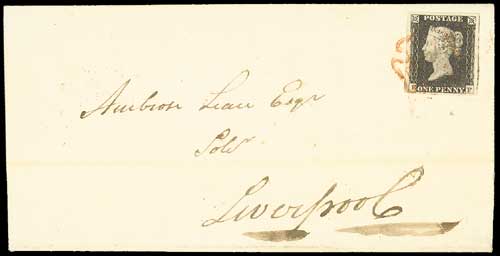 POSTAGE
ONE PENNY
Ambrose Lace Esqr
Solr
Liverpool